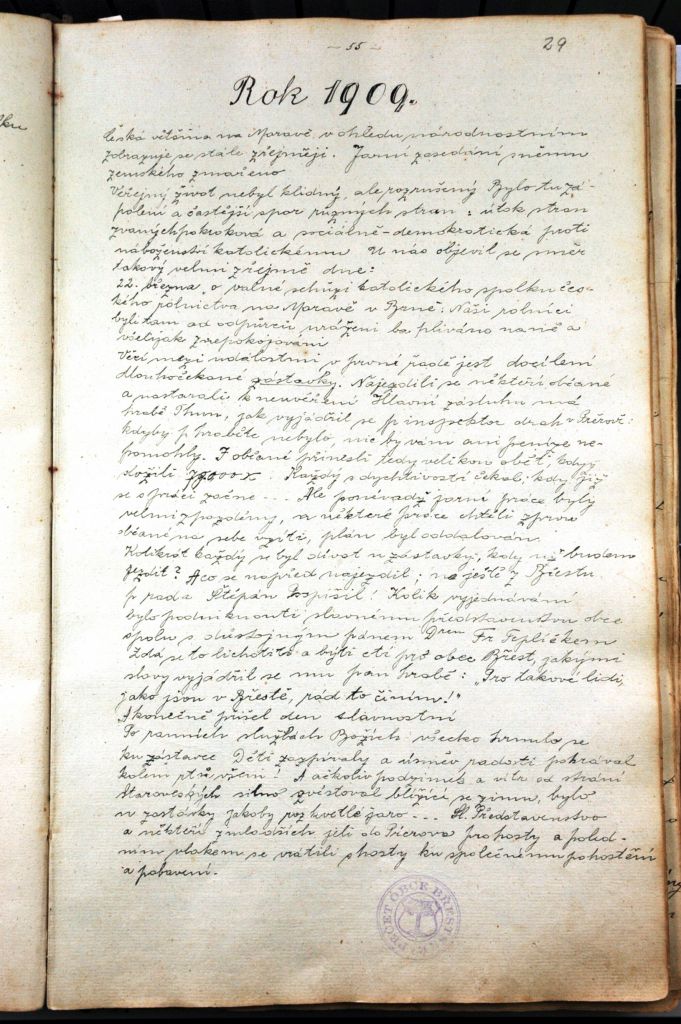 - 55 -
29
Rok 1909.
Česká většina na Moravě v ohledu národnostním
zobrazuje se stále zřejměji. Jarní zasedání sněmu
zemského zmařeno
Veřejný život nebyl klidný, ale rozrušený Bylo tu zá-
polení a častější spor různých stran: útok stran
zvaných pokroková a sociálně demokratická proti
náboženství katolickému U nás objevil se směr
takový velmi zřejmě dne:
22. března o valné schůzi katolického spolku čes-
kého rolnictva na Moravě v Brně: Naši rolníci
byli tam od odpůrců uráženi ba plíváno na ně a
všelijak znepokojováni
Věcí mezi událostmi v prvné řadě jest docílení
dlouhočekané zástavky. Najezdili se někteří občané
a nastarali k neuvěření Hlavní zásluhu má
hrabě Thun, jak vyjádřil se p. inspektor drah v Přerově:
kdyby p. hraběte nebylo, nic by vám ani peníze ne-
pomohly. I občané přinesli tedy velikou oběť, když
složili 000 K. Každý s dychtivostí čekal: kdy již
se s prací začne ... Ale poněvadž jarní práce byly
velmi zpozděny, a některé práce chtěli zprvu
občané na sebe vzíti, plán byl oddalován
Kolikrát každý se byl dívat u zástavky, kdy už budem
jezdit? A co se napřed najezdil; na ještě z Břestu
p. rada Štěpán Pospíšil! Kolik vyjednávání
bylo podniknouti slavnému představenstvu obce
spolu s důstojným pánem Drem Fr Tepličkem
Zdá se to lichotiti a býti ctí pro obec Břest, jakými
slovy vyjádřil se mu pan hrabě: "Pro takové lidi,
jako jsou v Břestě, rád to činím!"
A konečně přišel den slavnostní
Po ranních službách Božích všecko hrnulo se
ku zástavce Děti zazpívaly a úsměv radosti pohrával
kolem rtů všem! A ačkoliv podzimek a vítr od strání
Staroveských silno zvěstoval blížící se zimu, bylo
u zastávky jakoby rozkvetlé jaro ... Sl. Představenstvo
a někteří z mladších jeli do Přerova pro hosty a poled-
ním vlakem se vrátili s hosty ku společnému pohostění
a pobavení.
PEČEŤ OBCE BŘESTSKÉ